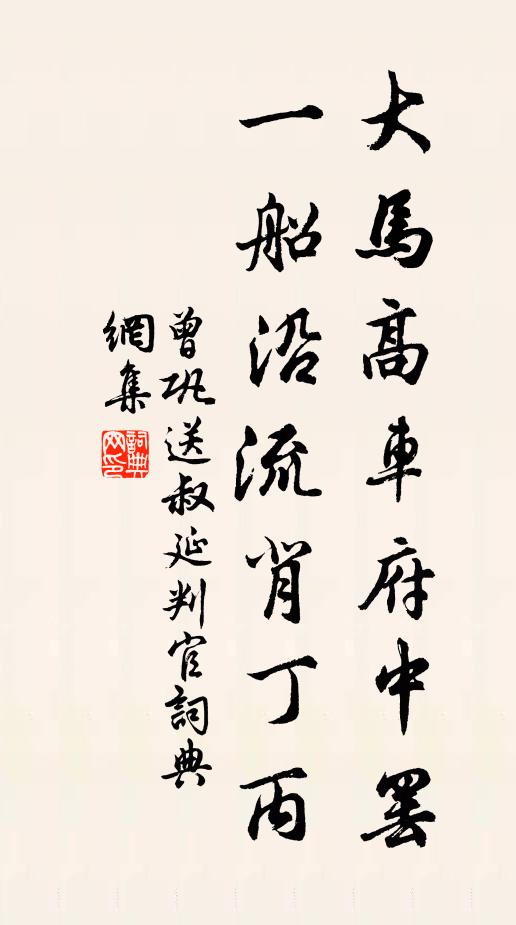 大馬高車府中罷
一船沿流背丁丙
曾巩送叔延判官詞典
網集
詞典
网印